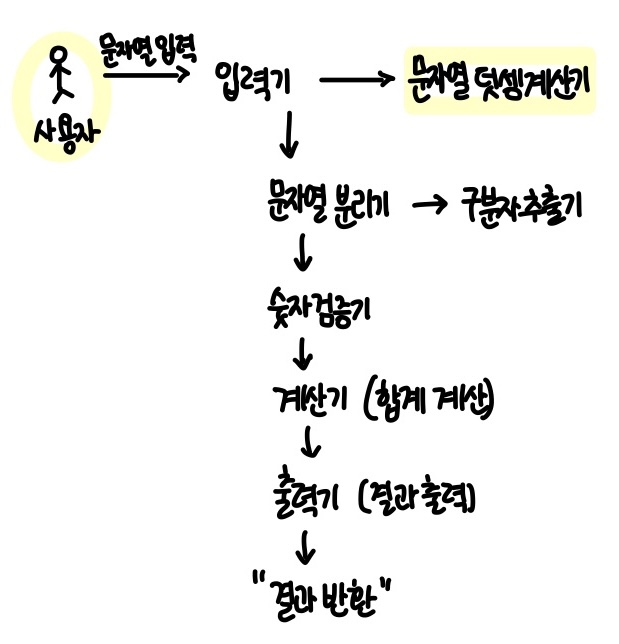 문자열 입력
사용자
입력기
문자열 덧셈 계산기
문자열 분리기
구분자 추출기
숫자 검증기
계산기 (합계 계산)
출력기 (결과 출력)
"결과 반환"